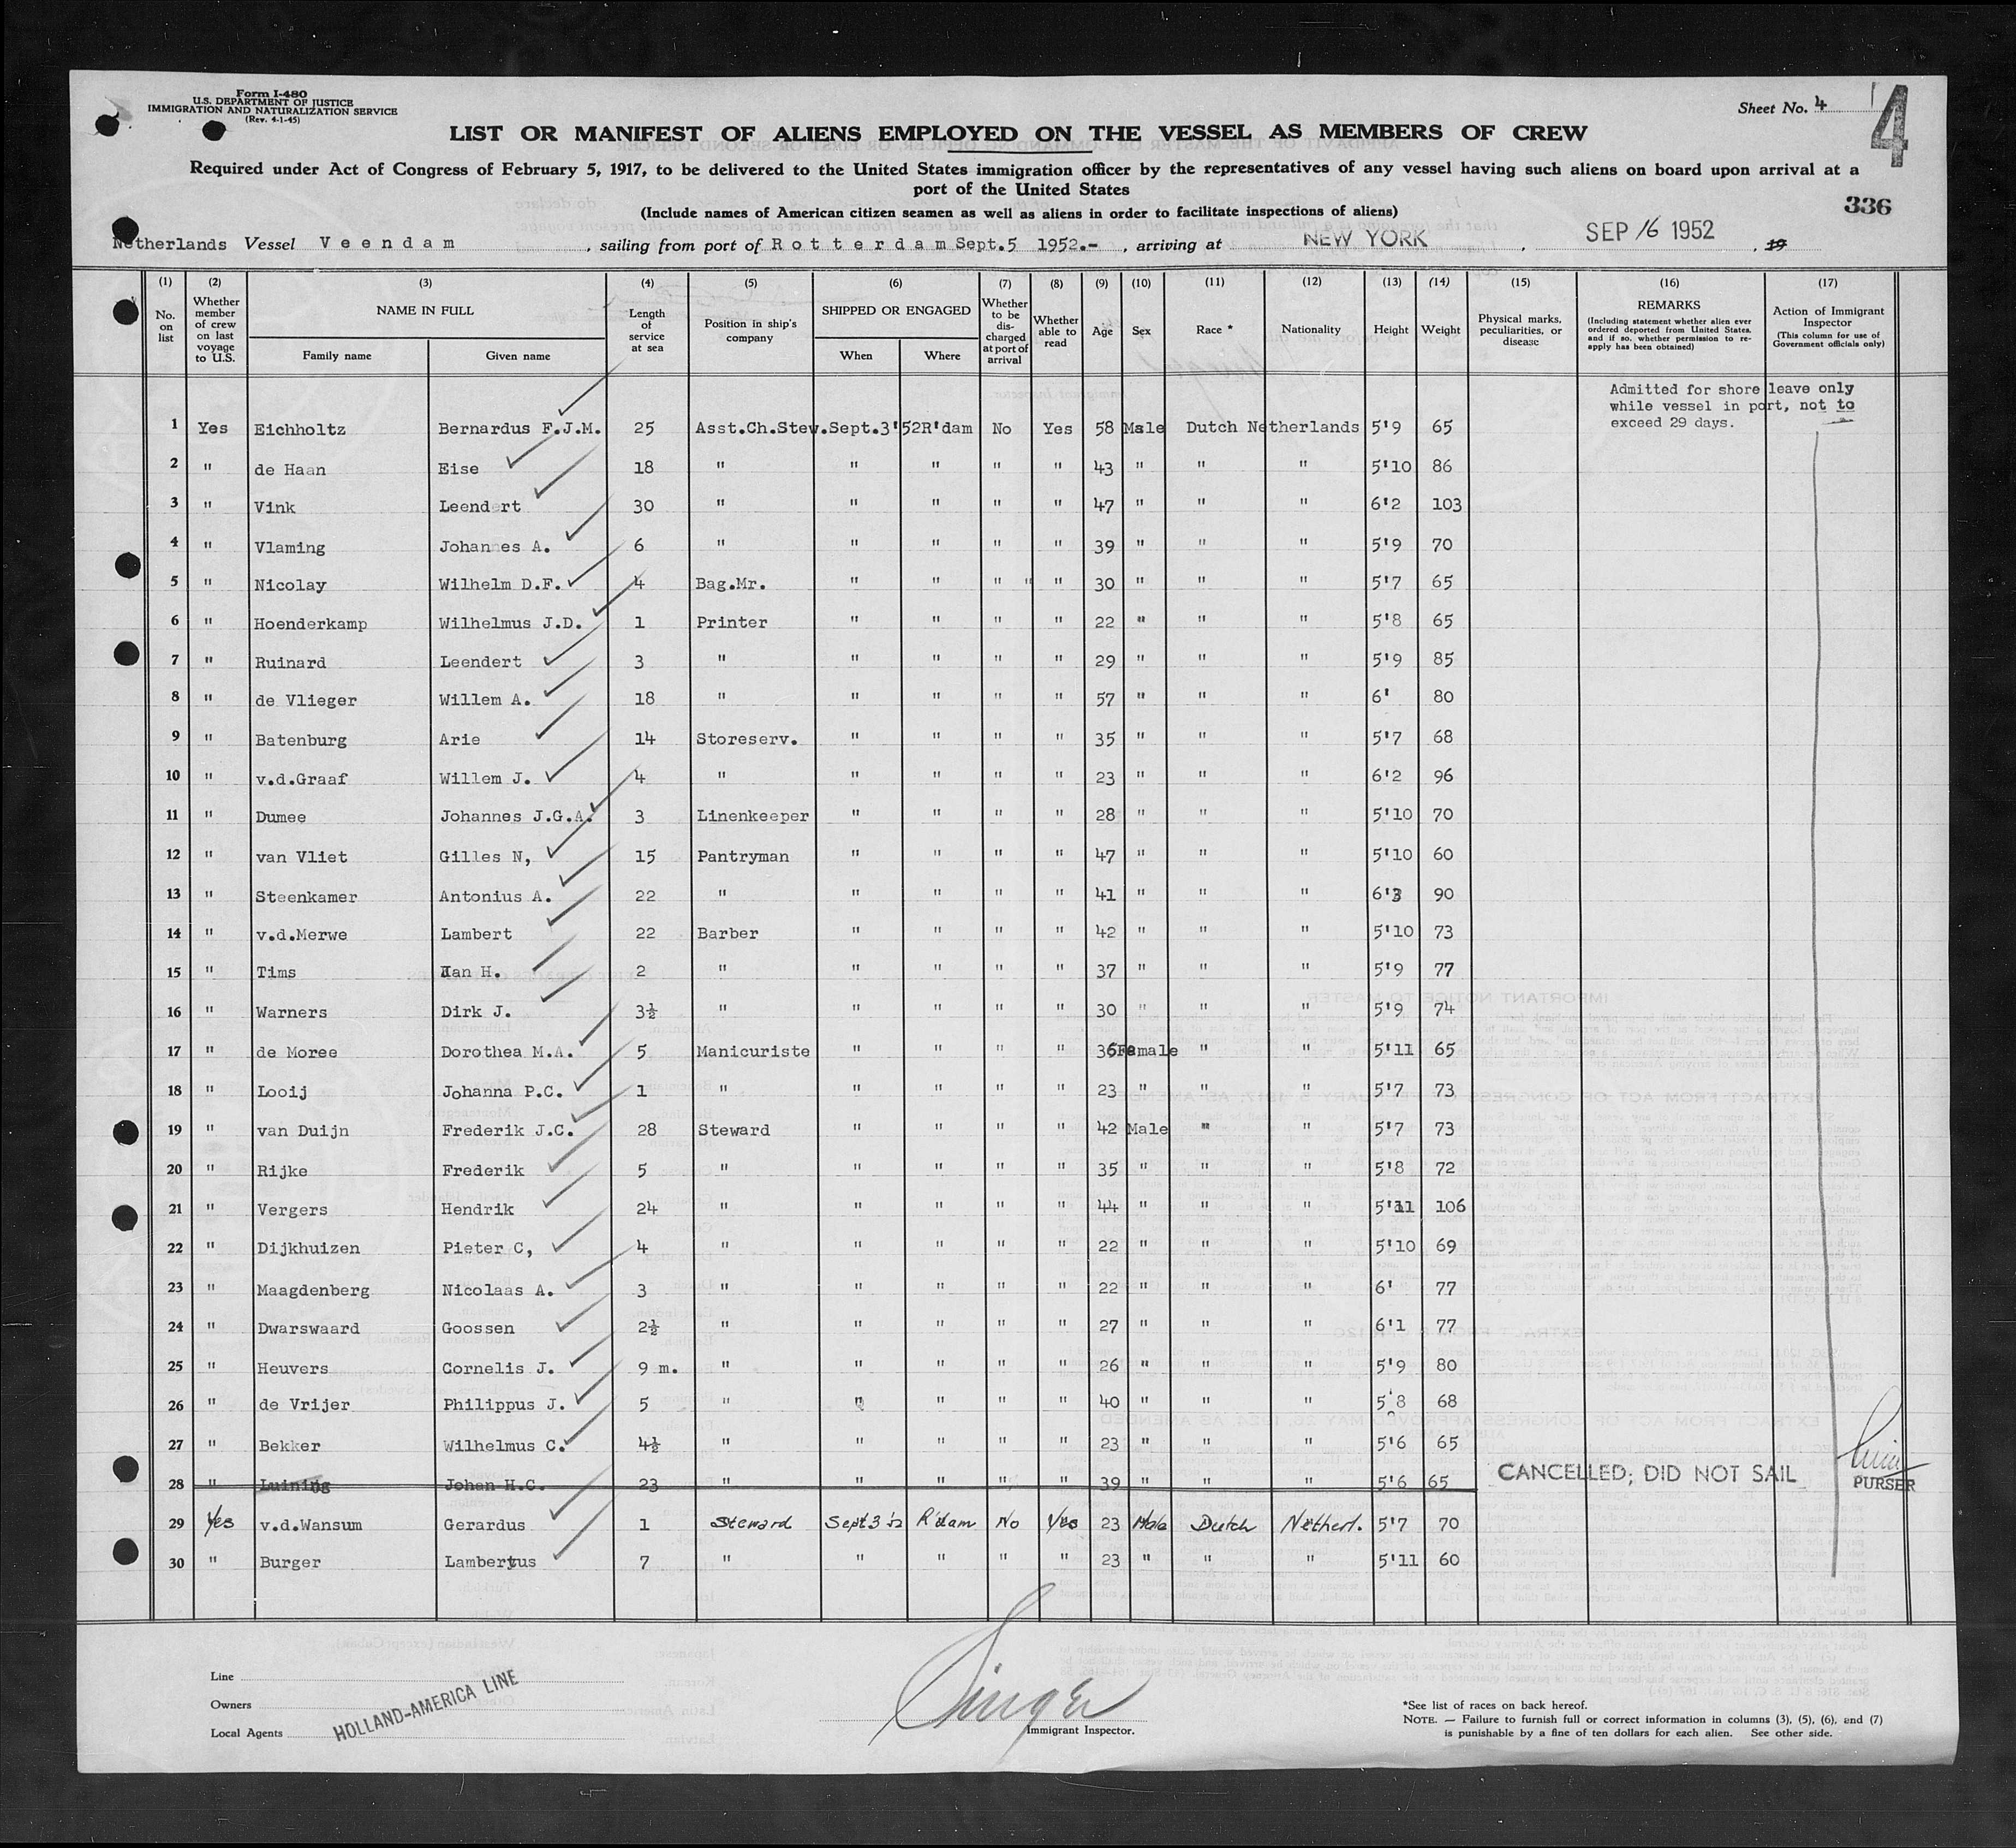 Form I-480
U.S. DEPARTMENT OF JUSTICE
IMMIGRATION AND NATURALIZATION SERVICE
(Rev. 4-1-45)
Sheet No. 4
4
LIST OR MANIFEST OF ALIENS EMPLOYED ON THE VESSEL AS MEMBERS OF CREW
Required under Act of Congress of February 5, 1917, to be delivered to the United States immigration officer by the representatives of any vessel having such aliens on board upon arrival at a
port of the United States
(Include names of American citizen seamen as well as aliens in order to facilitate inspections of aliens)
336
Netherlands Vessel Veendam, sailing from port of Rotterdam Sept.5 1952.-, arriving at NEW YORK, SEP 16 1952, 19
(1) (2) (3) (4) (5) (6) (7) (8) (9) (10) (11) (12) (13) (14) (15) (16) (17)
No. on list
Whether member of crew on last voyage to U.S.
NAME IN FULL
Family name
Given name
Length of service at sea
Position in ship's company
SHIPPED OR ENGAGED
When
Where
Whether to be discharged at port of arrival
Whether able to read
Age
Sex
Race *
Nationality
Height
Weight
Physical marks, peculiarities, or disease
REMARKS
(Including statement whether alien ever ordered deported from United States, and if so, whether permission to re-apply has been obtained)
Action of Immigrant Inspector
(This column for use of Government officials only)
Admitted for shore leave only
while vessel in port, not to
exceed 29 days.
1 Yes Eichholtz Bernardus F.J.M. 25 Asst.Ch.Stew. Sept.3'52 R'dam No Yes 58 Male Dutch Netherlands 5'9 65
2 " de Haan Eise 18 " " " " " 43 " " " 5'10 86
3 " Vink Leendert 30 " " " " " 47 " " " 6'2 103
4 " Vlaming Johannes A. 6 " " " " " 39 " " " 5'9 70
5 " Nicolay Wilhelm D.F. 4 Bag.Mr. " " " " 30 " " " 5'7 65
6 " Hoenderkamp Wilhelmus J.D. 1 Printer " " " " 22 " " " 5'8 65
7 " Ruinard Leendert 3 " " " " " 29 " " " 5'9 85
8 " de Vlieger Willem A. 18 " " " " " 57 " " " 6' 80
9 " Batenburg Arie 14 Storeserv. " " " " 35 " " " 5'7 68
10 " v.d.Graaf Willem J. 4 " " " " " 23 " " " 6'2 96
11 " Dumee Johannes J.G.A. 3 Linenkeeper " " " " 28 " " " 5'10 70
12 " van Vliet Gilles N, 15 Pantryman " " " " 47 " " " 5'10 60
13 " Steenkamer Antonius A. 22 " " " " " 41 " " " 6'3 90
14 " v.d.Merwe Lambert 22 Barber " " " " 42 " " " 5'10 73
15 " Tims Jan H. 2 " " " " " 37 " " " 5'9 77
16 " Warners Dirk J. 3½ " " " " " 30 " " " 5'9 74
17 " de Moree Dorothea M.A. 5 Manicuriste " " " " 36 Female " " 5'11 65
18 " Looij Johanna P.C. 1 " " " " " 23 " " " 5'7 73
19 " van Duijn Frederik J.C. 28 Steward " " " " 42 Male " " 5'7 73
20 " Rijke Frederik 5 " " " " " 35 " " " 5'8 72
21 " Vergers Hendrik 24 " " " " " 44 " " " 5'11 106
22 " Dijkhuizen Pieter C, 4 " " " " " 22 " " " 5'10 69
23 " Maagdenberg Nicolaas A. 3 " " " " " 22 " " " 6' 77
24 " Dwarswaard Goossen 2½ " " " " " 27 " " " 6'1 77
25 " Heuvers Cornelis J. 9 m. " " " " " 26 " " " 5'9 80
26 " de Vrijer Philippus J. 5 " " " " " 40 " " " 5'8 68
27 " Bekker Wilhelmus C. 4½ " " " " " 23 " " " 5'6 65
28 " Luining Johan H.C. 23 " " " " " 39 " " " 5'6 65 CANCELLED; DID NOT SAIL PURSER
29 Yes v.d.Wansum Gerardus 1 Steward Sept 3 '52 R'dam No Yes 23 Male Dutch Netherl. 5'7 70
30 " Burger Lambertus 7 " " " " " 23 " " " 5'11 60
Line
Owners
Local Agents
HOLLAND-AMERICA LINE
Singer
Immigrant Inspector.
*See list of races on back hereof.
NOTE. — Failure to furnish full or correct information in columns (3), (5), (6), and (7)
is punishable by a fine of ten dollars for each alien. See other side.